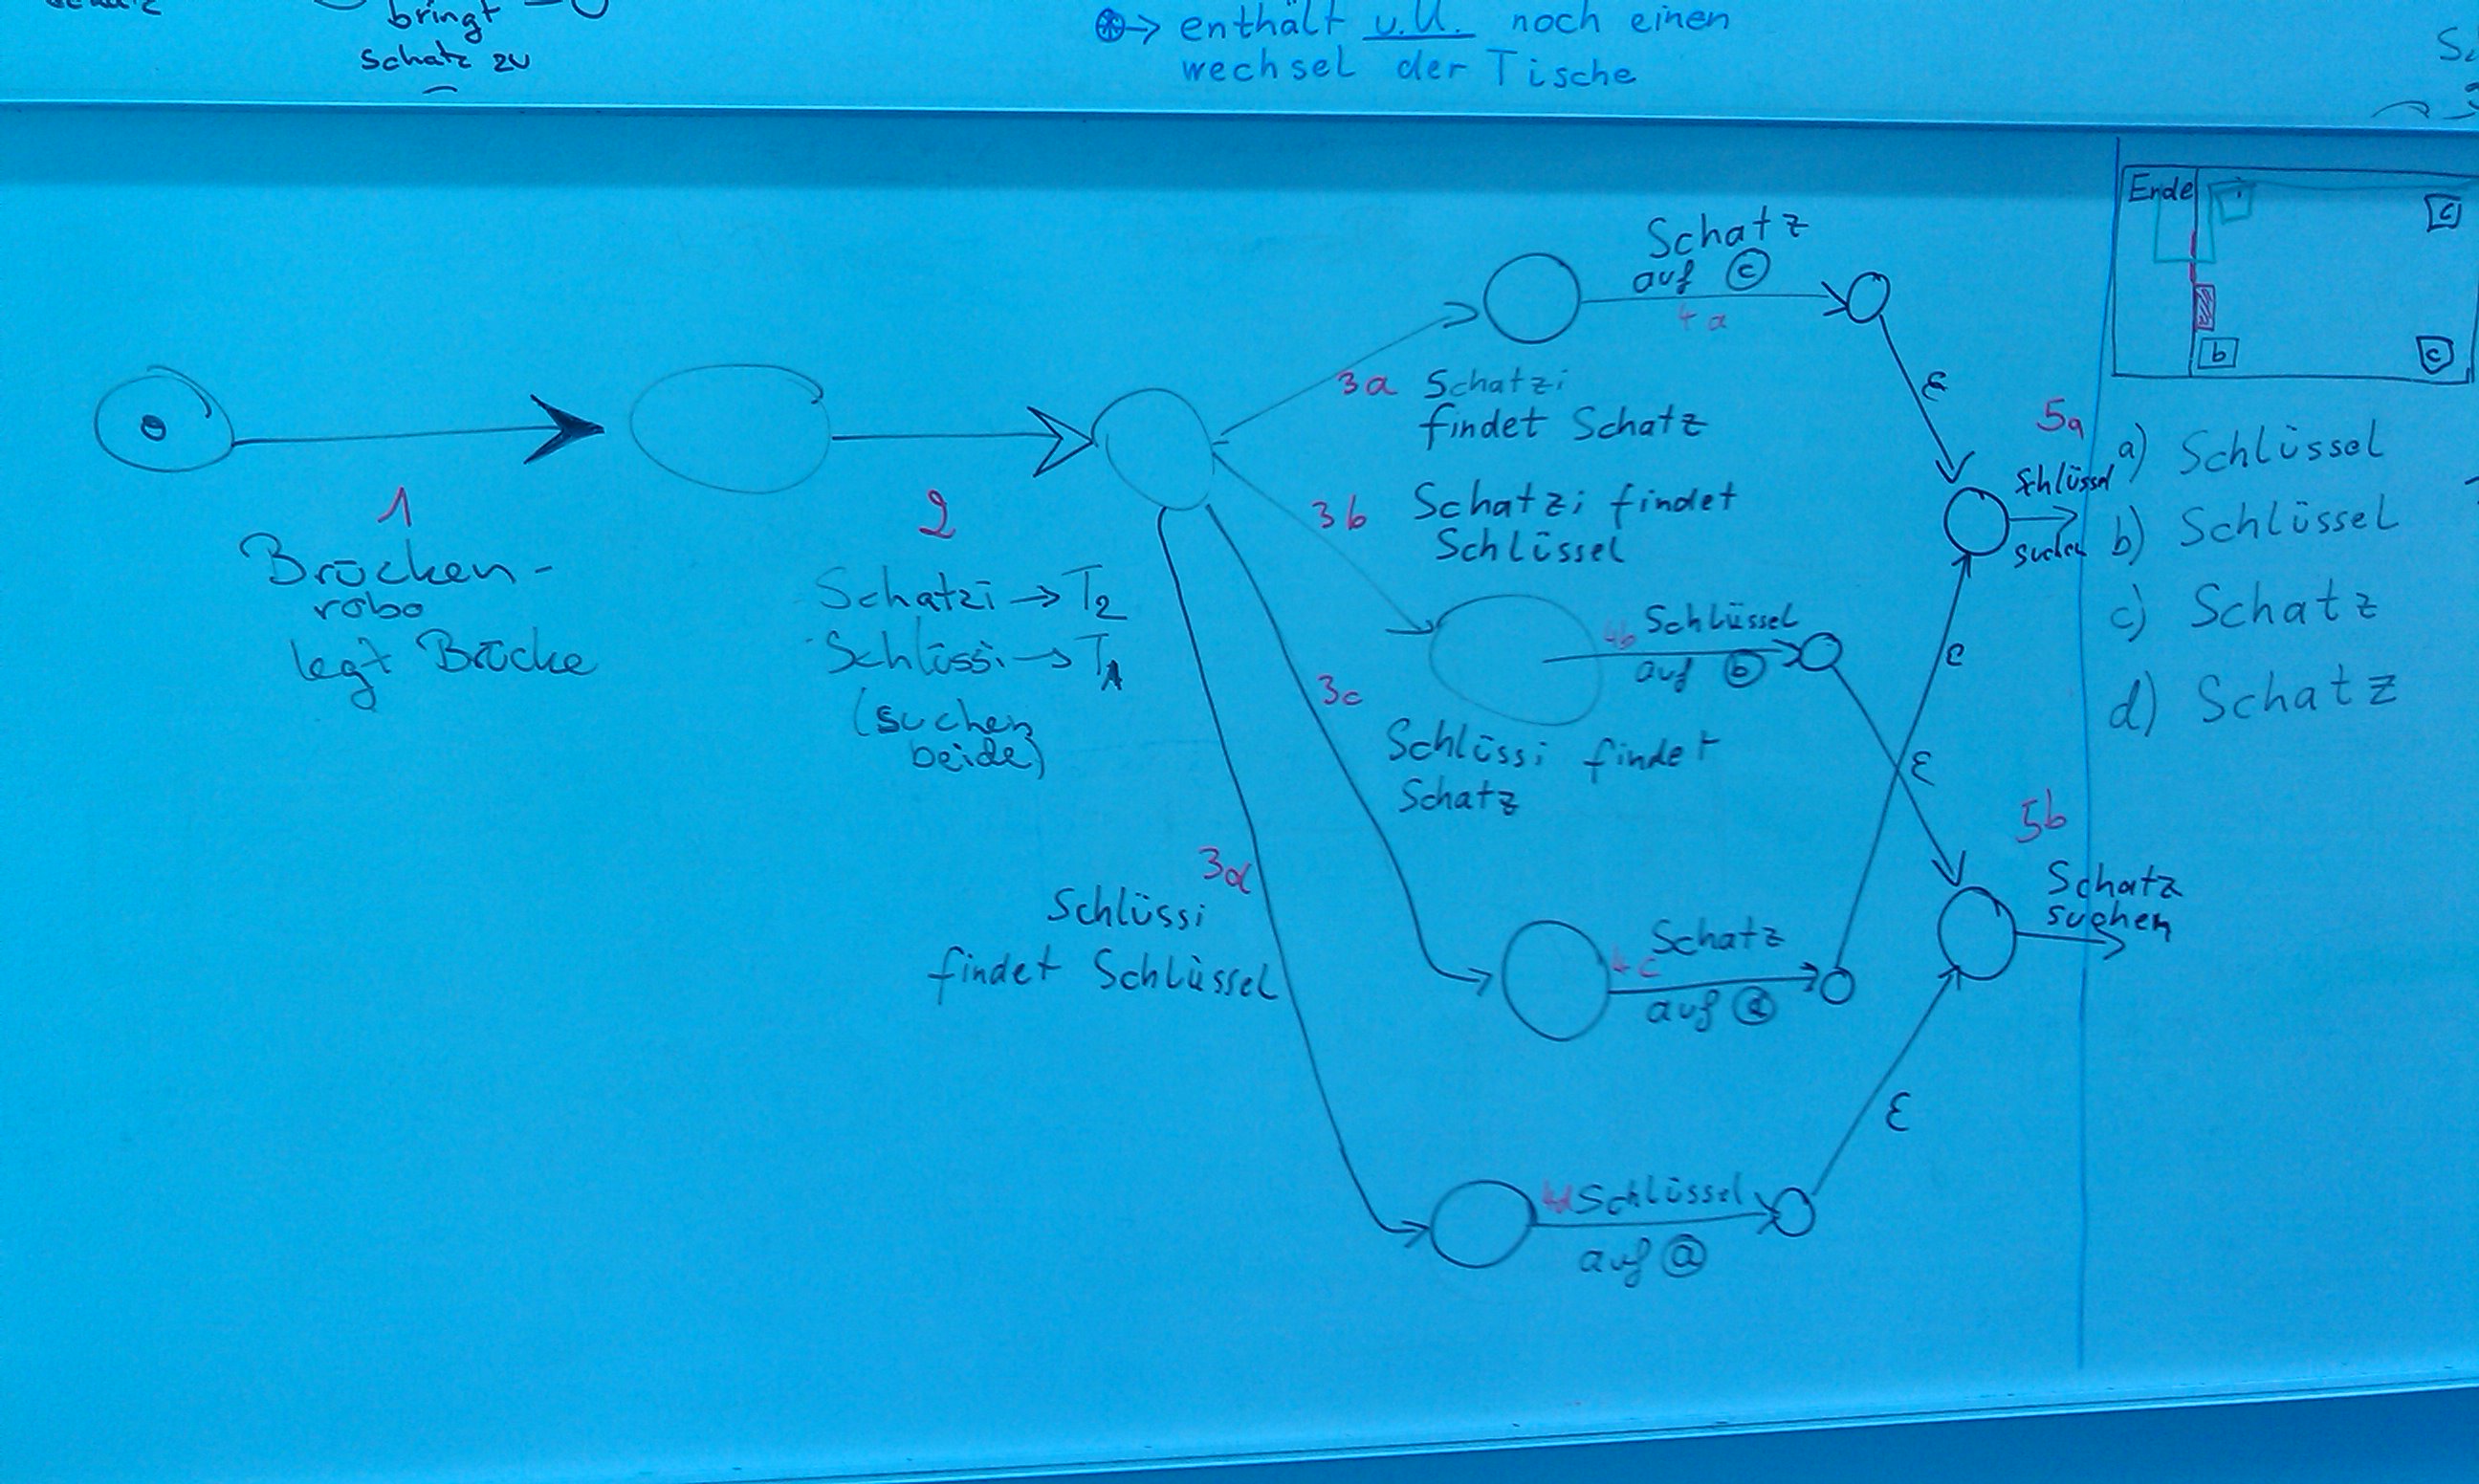 bringt
Schatz zu
⊛→ enthält u.U. noch einen
wechsel der Tische
1
Brücken-
robo
legt Brücke
2
Schatzi → T2
Schlüssi → T1
(suchen
beide)
3a Schatzi
findet Schatz
3b Schatzi findet
Schlüssel
3c
Schlüssi findet
Schatz
3d
Schlüssi
findet Schlüssel
Schatz
auf ⓒ
4a
4b Schlüssel
auf ⓑ
4c Schatz
auf ⓓ
4d Schlüssel
auf ⓐ
ε
ε
ε
ε
5a
Schlüssel
suchen
5b
Schatz
suchen
Ende
c
b
c
a) Schlüssel
b) Schlüssel
c) Schatz
d) Schatz